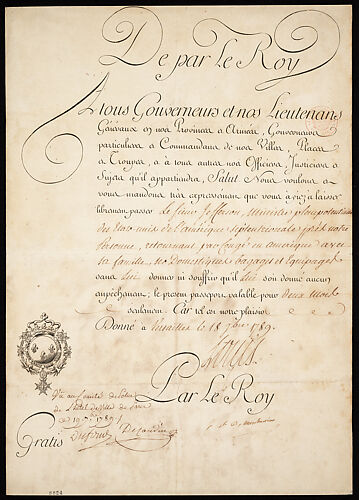 De par le Roy
A tous Gouverneurs et nos Lieutenans
Généraux en nos Provinces & Armées, Gouverneurs
particuliers & Commandans de nos Villes, Places
& Troupes, & à tous autres nos Officiers, Justiciers &
Sujets qu'il appartiendra, Salut. Nous voulons &
vous mandons très expressément que vous ayez à laisser
librement passer le Sieur Jefferson, Ministre plenipotentiaire
des Etats-unis de l'amérique septentrionale près notre
Personne, retournant par congé en amérique avec
sa famille, ses Domestiques bagages et Equipages
sans lui donner ni souffrir qu'il lui soit donné aucun
empêchement; le présent passeport valable pour deux mois
seulement. Car tel est notre plaisir.
Donné à Versailles le 18 7bre 1789.
Louis
Par le Roy
Vu au Comité de Police
de L'hotel de Ville de
ce 19 7bre 1789
Gratis
8824